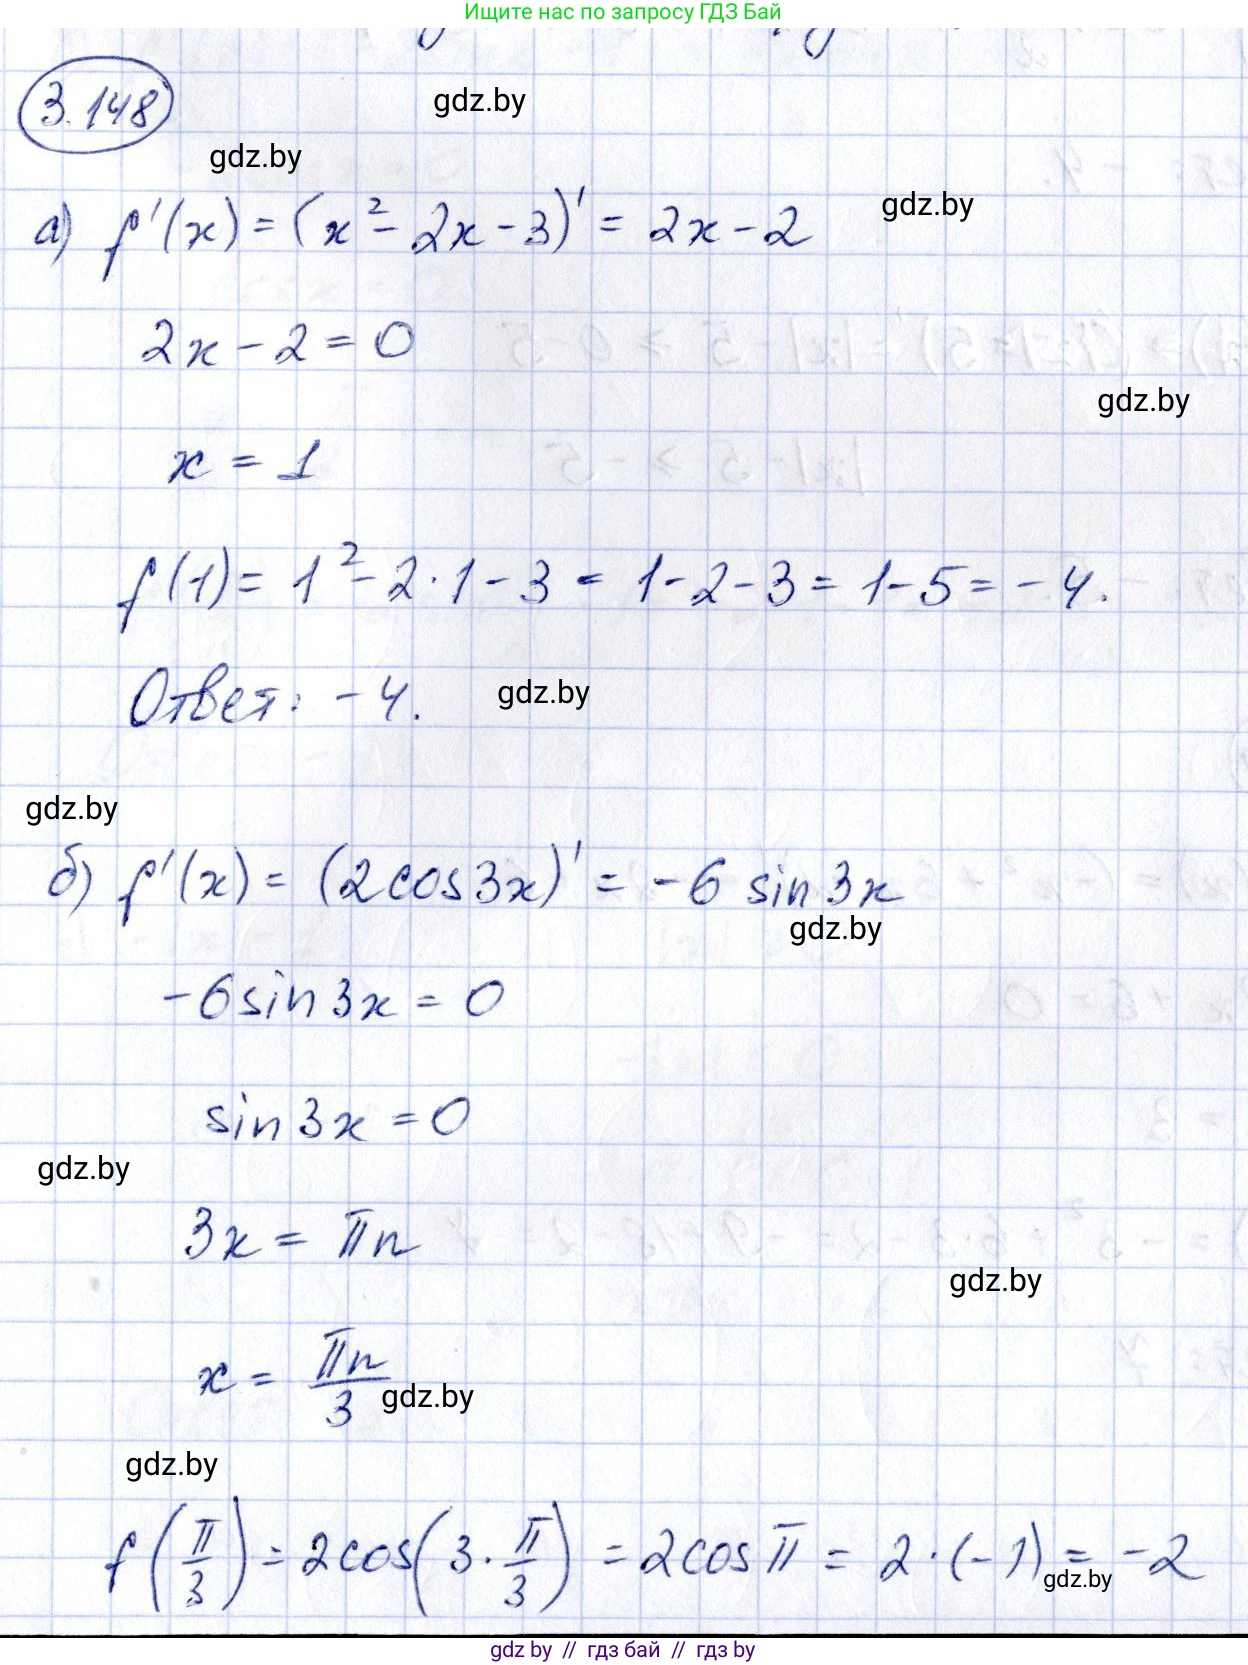 Ищите нас по запросу ГДЗ Бай
3.148
gdz.by
gdz.by
а) f'(x) = (x² - 2x - 3)' = 2x - 2
gdz.by
2x - 2 = 0
gdz.by
x = 1
f(1) = 1² - 2·1 - 3 = 1 - 2 - 3 = 1 - 5 = -4.
Ответ: -4.
gdz.by
gdz.by
б) f'(x) = (2cos3x)' = -6 sin3x
gdz.by
-6sin3x = 0
sin3x = 0
gdz.by
3x = πn
gdz.by
x = πn/3
gdz.by
gdz.by
f(π/3) = 2cos(3·π/3) = 2cosπ = 2·(-1) = -2
gdz.by
gdz by // гдз бай // гдз by